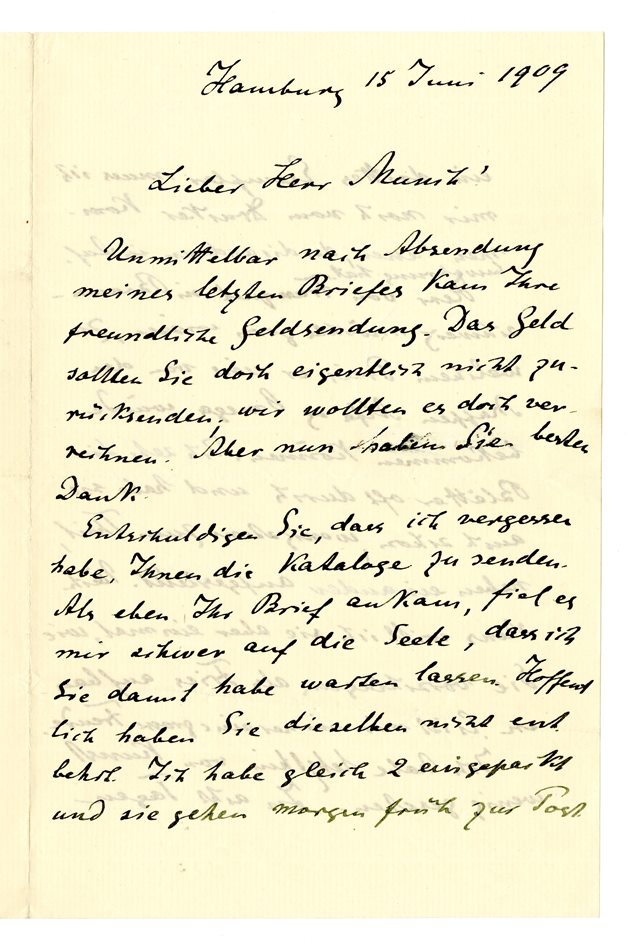 Hamburg 15 Juni 1909
Lieber Herr Munch!
Unmittelbar nach Absendung
meines letzten Briefes kam Ihre
freundliche Geldsendung. Das Geld
sollten Sie doch eigentlich nicht zu-
rücksenden, wir wollten es doch ver-
rechnen. Aber nun haben Sie besten
Dank.
Entschuldigen Sie, dass ich vergessen
habe, Ihnen die Kataloge zu senden.
Als eben Ihr Brief ankam, fiel es
mir schwer auf die Seele, dass ich
Sie damit habe warten lassen. Hoffent
lich haben Sie dieselben nicht ent
behrt. Ich habe gleich 2 eingepackt
und sie gehen morgen früh zur Post.